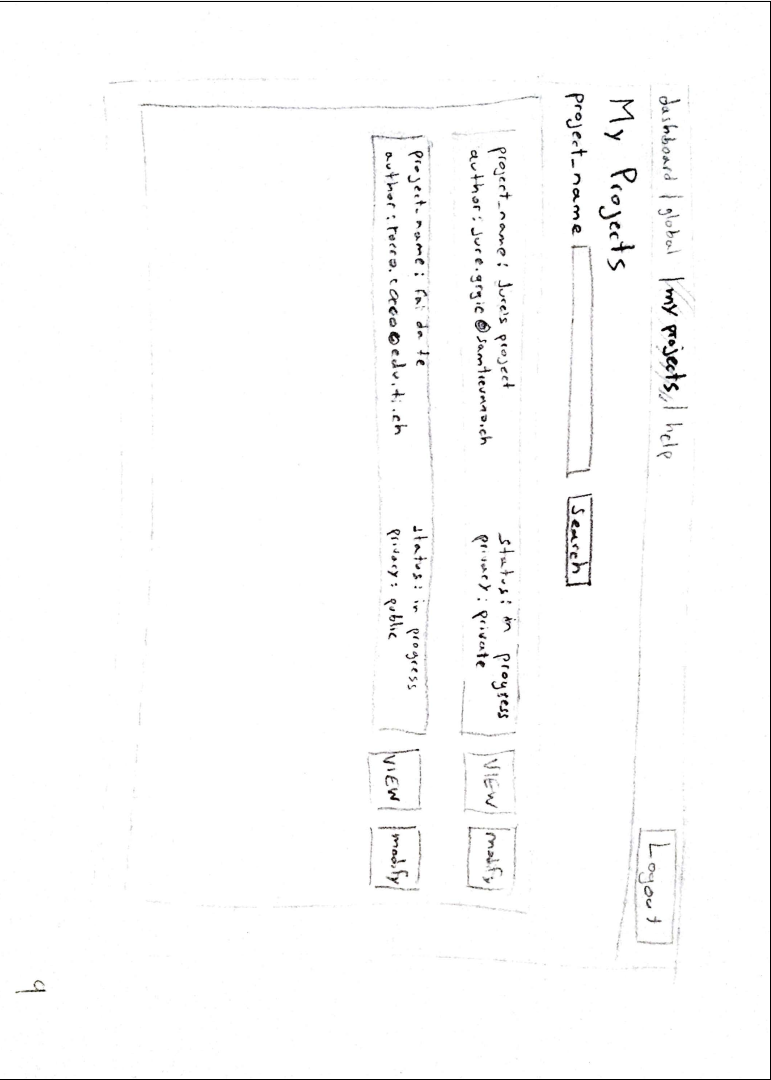 dashboard / global / my projects / help
Logout
My Projects
project_name
search
project_name: Jure's project
author: jure.grgic@samtrevano.ch
status: in progress
privacy: private
VIEW
modify
project_name: Fai da te
author: @edu.ti.ch
status: in progress
privacy: public
VIEW
modify
9